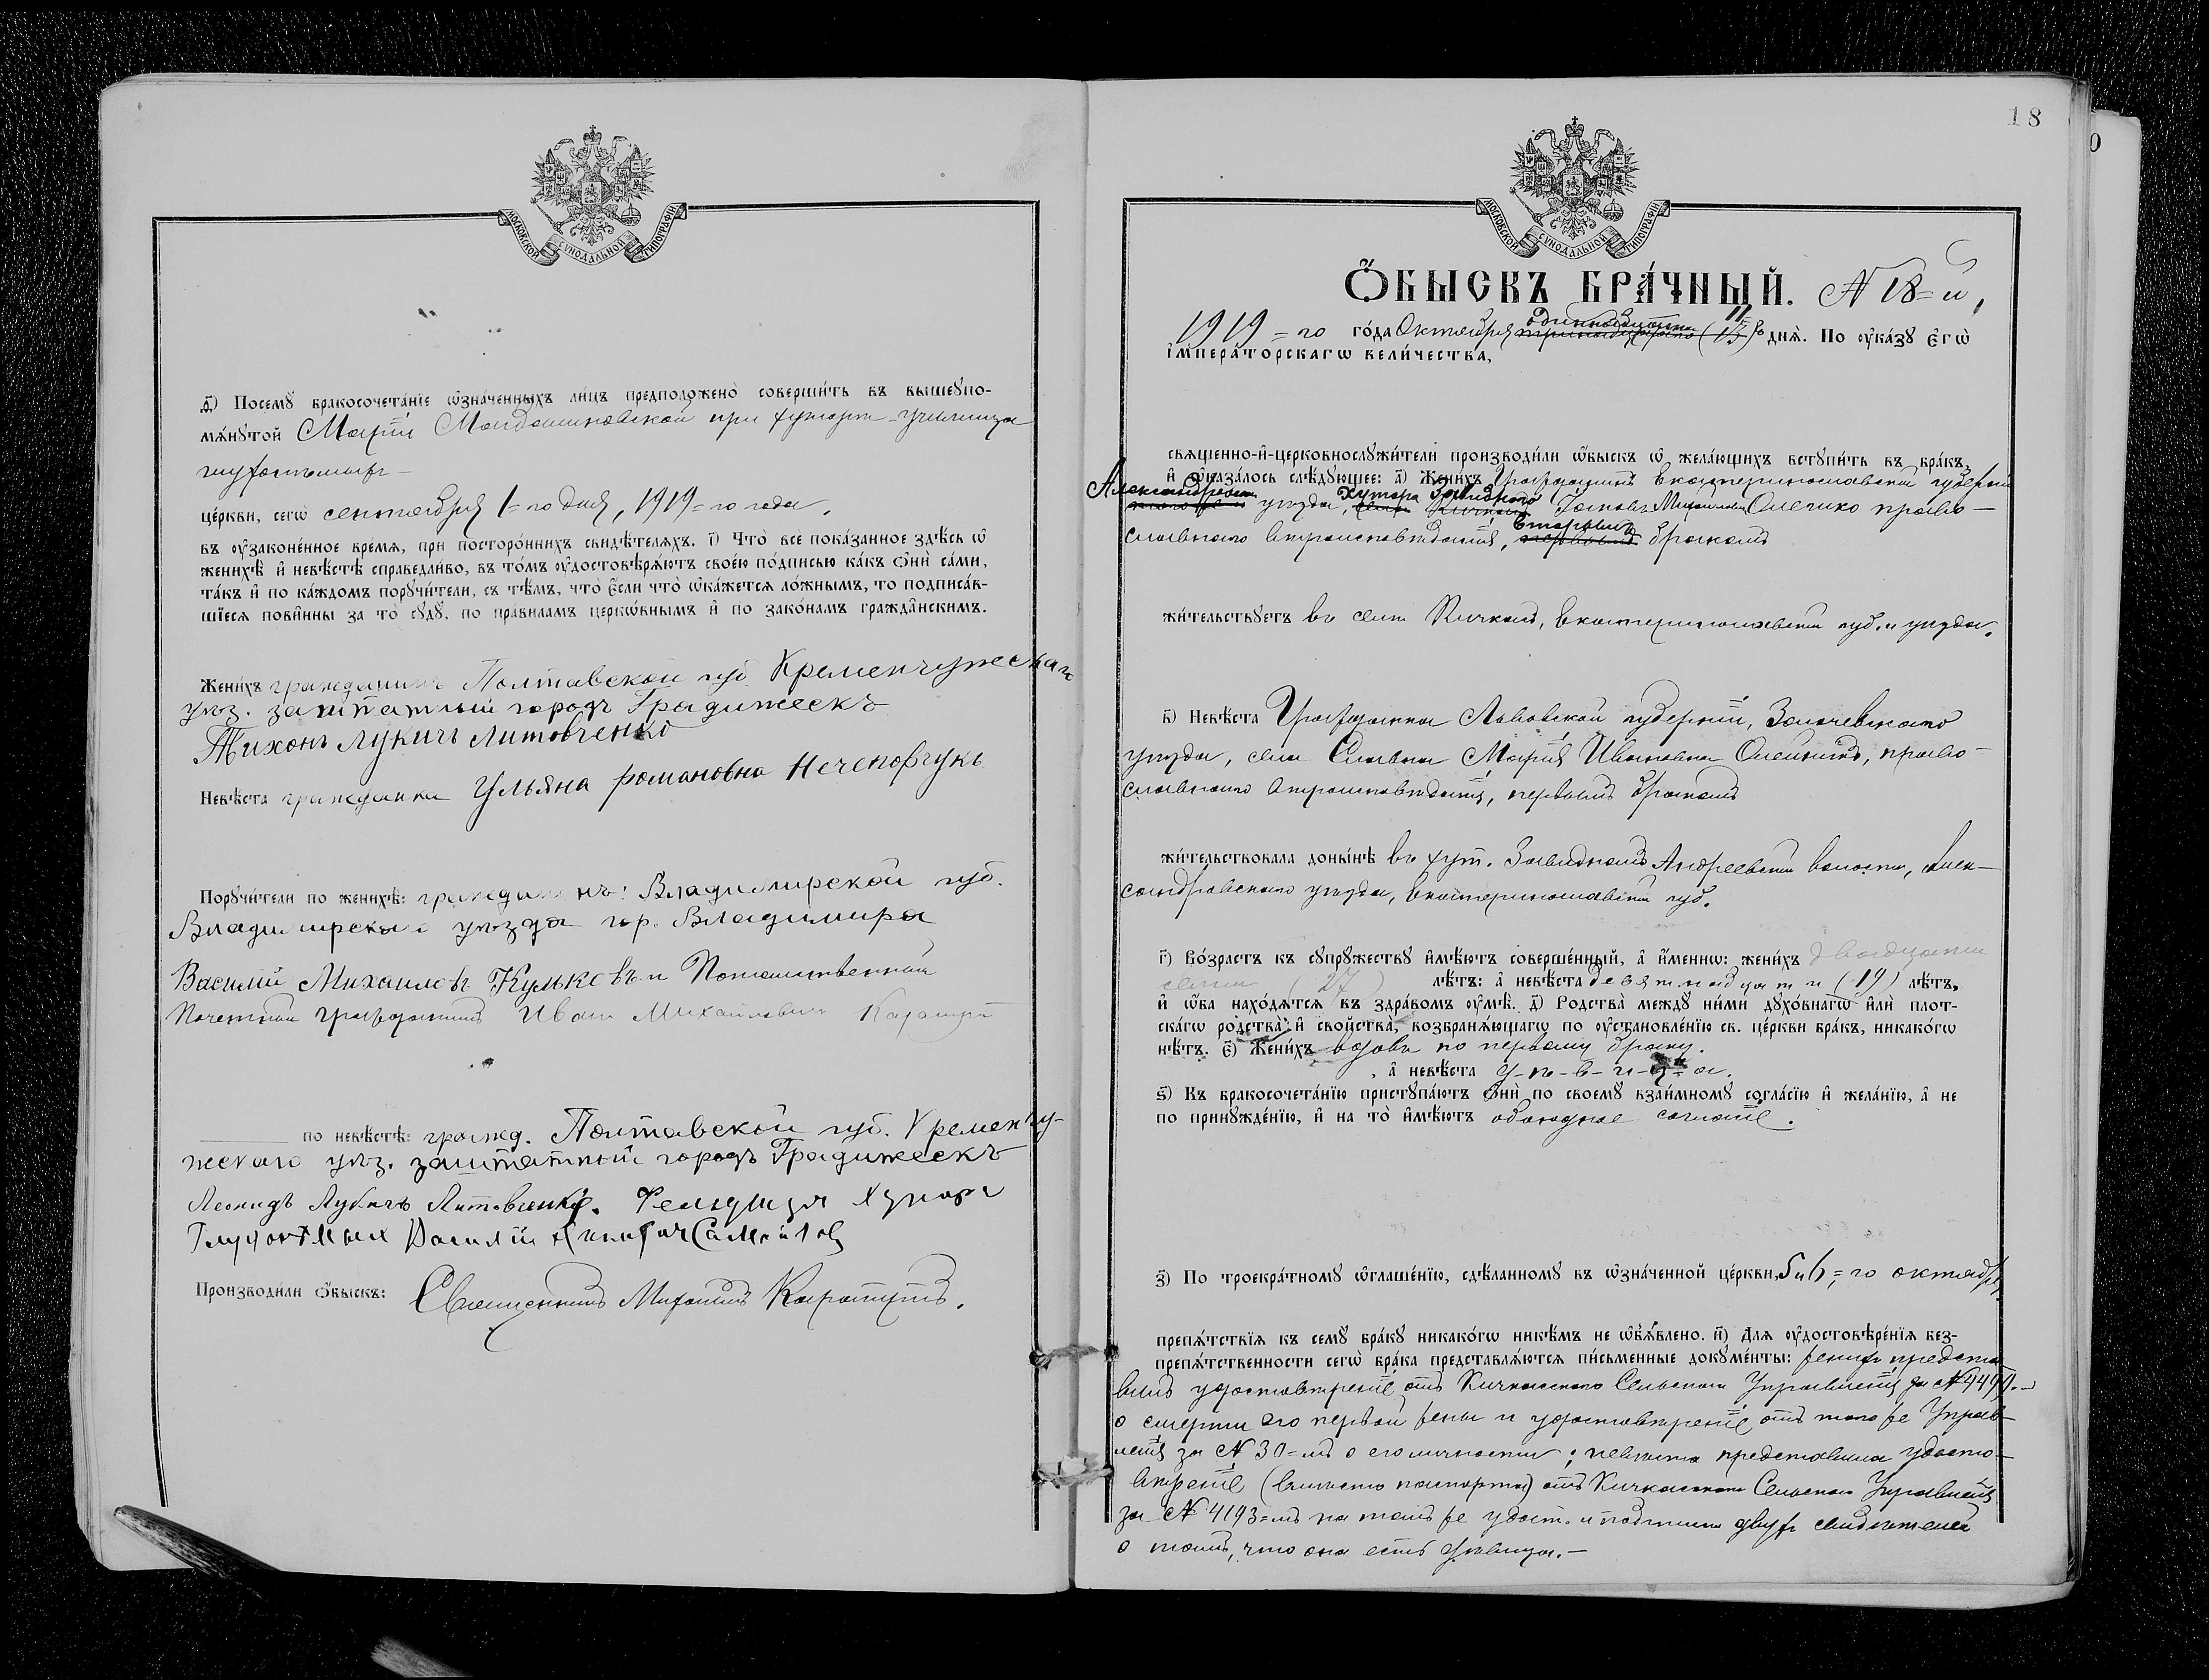 МОСКОВСКОЙ СѴНОДАЛЬНОЙ ТИПОГРАФІИ
ѳ҃) Посемꙋ бракосочета́нїе ѡ҆зна́ченныхъ ли́цъ предположено̀ соверши́ть въ вышеꙋпо-
мѧ́нꙋтой Маріе Магдалиновской при хуторѣ-училища
глухонѣмыхъ
це́ркви, сегѡ̀ сентября 1-го дня, 1919-го года.
въ ᲂу҆законе́нное вре́мѧ, при посторо́ннихъ свидѣ́телѧхъ. і҃) Что̀ всѐ пока́занное здѣ́сь ѡ҆
женихѣ̀ и҆ невѣ́стѣ справедли́во, въ то́мъ ᲂу҆достовѣрѧ́ютъ свое́ю по́дписью ка́къ ѻ҆нѝ са́ми,
та́къ и҆ по ка́ждомъ порꙋчи́тели, съ тѣ́мъ, что̀ є҆́сли что̀ ѡ҆ка́жетсѧ ло́жнымъ, то подписа́в-
шїесѧ пови́нны за то̀ сꙋдꙋ̀, по пра́виламъ церко́внымъ и҆ по зако́намъ гражда́нскимъ.
Жени́хъ гражданинъ Полтавской губ Кременчужескаго
уѣз. заштатный городъ Градижескъ
Тихонъ Лукичъ Литовченко
Невѣ́ста гражданка Ульяна романовна Нечепорчукъ
Порꙋчи́тели по женихѣ̀: гражданинъ: Владимирской губ.
Владимирскаго уѣзда гор. Владимира
Василий Михаиловъ Кульковъ и Потомственный
Почетный гражданинъ Иванъ Михайловичъ
по невѣ́стѣ: гражд. Полтавской губ. Кременчу-
жескаго уѣз. заштатный городъ Градижескъ
Леонидъ Лукичъ Литовченко. Фельдшеръ хутора
Глухонѣмыхъ Василій Самойлов
Производи́ли ѻ҆́быскъ: Священникъ Михаилъ
18
МОСКОВСКОЙ СѴНОДАЛЬНОЙ ТИПОГРАФІИ
Ѻ҆́БЫСКЪ БРА́ЧНЫЙ. N 18-й,
одиннадцатаго 11
1919-го го́да Октября тринадцатаго (13) го днѧ̀. По ᲂу҆ка́зꙋ є҆гѡ̀
і҆мпера́торскагѡ вели́чества,
свѧще́нно-и҆-церковнослꙋжи́тели производи́ли ѡ҆́быскъ ѡ҆ жела́ющихъ встꙋпи́ть въ бра́къ,
и҆ ѡ҆каза́лось слѣ́дꙋющее: а҃) Жени́хъ Гражданинъ Екатеринославской губерніи
Александровскаго хутора Завиднаго
уѣзда, Михайловъ Олешко право-
славнаго вѣроисповѣданія, вторымъ первымъ бракомъ
жи́тельствꙋетъ въ селѣ Кичкасъ, Екатеринославской губ. и уѣзда.
в҃) Невѣ́ста Гражданка Львовской губерніи, Золочевскаго
уѣзда, села Славна Марія Ивановна Олейникъ, право-
славнаго вѣроисповѣданія, первымъ бракомъ
жи́тельствовала доны́нѣ въ хут. Завидномъ Андреевской волости, Алек-
сандровскаго уѣзда, Екатеринославской губ.
г҃) Во́зрастъ къ сꙋпрꙋ́жествꙋ и҆мѣ́ютъ соверше́нный, а҆ и҆́меннѡ: жени́хъ двадцати
семи (27) лѣ́тъ: а҆ невѣ́ста девятнадцати (19) лѣ́тъ,
и҆ ѡ҆́ба нахо́дѧтсѧ въ здра́вомъ ᲂу҆мѣ̀. д҃) Родства̀ междꙋ ни́ми дꙋхо́внагѡ и҆лѝ плот-
ска́гѡ родства̀ и҆ сво́йства, возбранѧ́ющагѡ по ᲂу҆становле́нїю св. це́ркви бра́къ, никако́гѡ
нѣ́тъ. є҃) Жени́хъ вдовъ по первому браку.
, а҆ невѣ́ста д-ѣ-в-и-ц-а.
ѕ҃) Къ бракосочета́нїю пристꙋпа́ютъ ѻ҆нѝ по своемꙋ̀ взаи́мномꙋ согла́сїю и҆ жела́нїю, а҆ не
по принꙋжде́нїю, и҆ на то̀ и҆мѣ́ютъ обоюдное согласіе.
з҃) По троекра́тномꙋ ѡ҆глаше́нїю, сдѣ́ланномꙋ въ ѡ҆зна́ченной це́ркви, 5 и 6-го октября
препѧ́тствїѧ къ семꙋ̀ бра́кꙋ никако́гѡ никѣ́мъ не ѡ҆бъѧ́влено. и҃) Для ᲂу҆достовѣре́нїѧ без-
препѧ́тственности сегѡ̀ бра́ка представлѧ́ютсѧ пи́сьменные докꙋме́нты: женихъ предста-
вилъ удостовѣреніе отъ Кичкасскаго Сельскаго Управленія за N
о смерти его первой жены и удостовѣреніе отъ того же Управ-
ленія за N 30-мъ о его личности; невѣста представила удосто-
вѣреніе (вмѣсто паспорта) отъ Кичкасскаго Сельскаго Управленія
за N 4193-мъ на томъ же удост. и подписи двухъ свидѣтелей
о томъ, что она есть дѣвица.